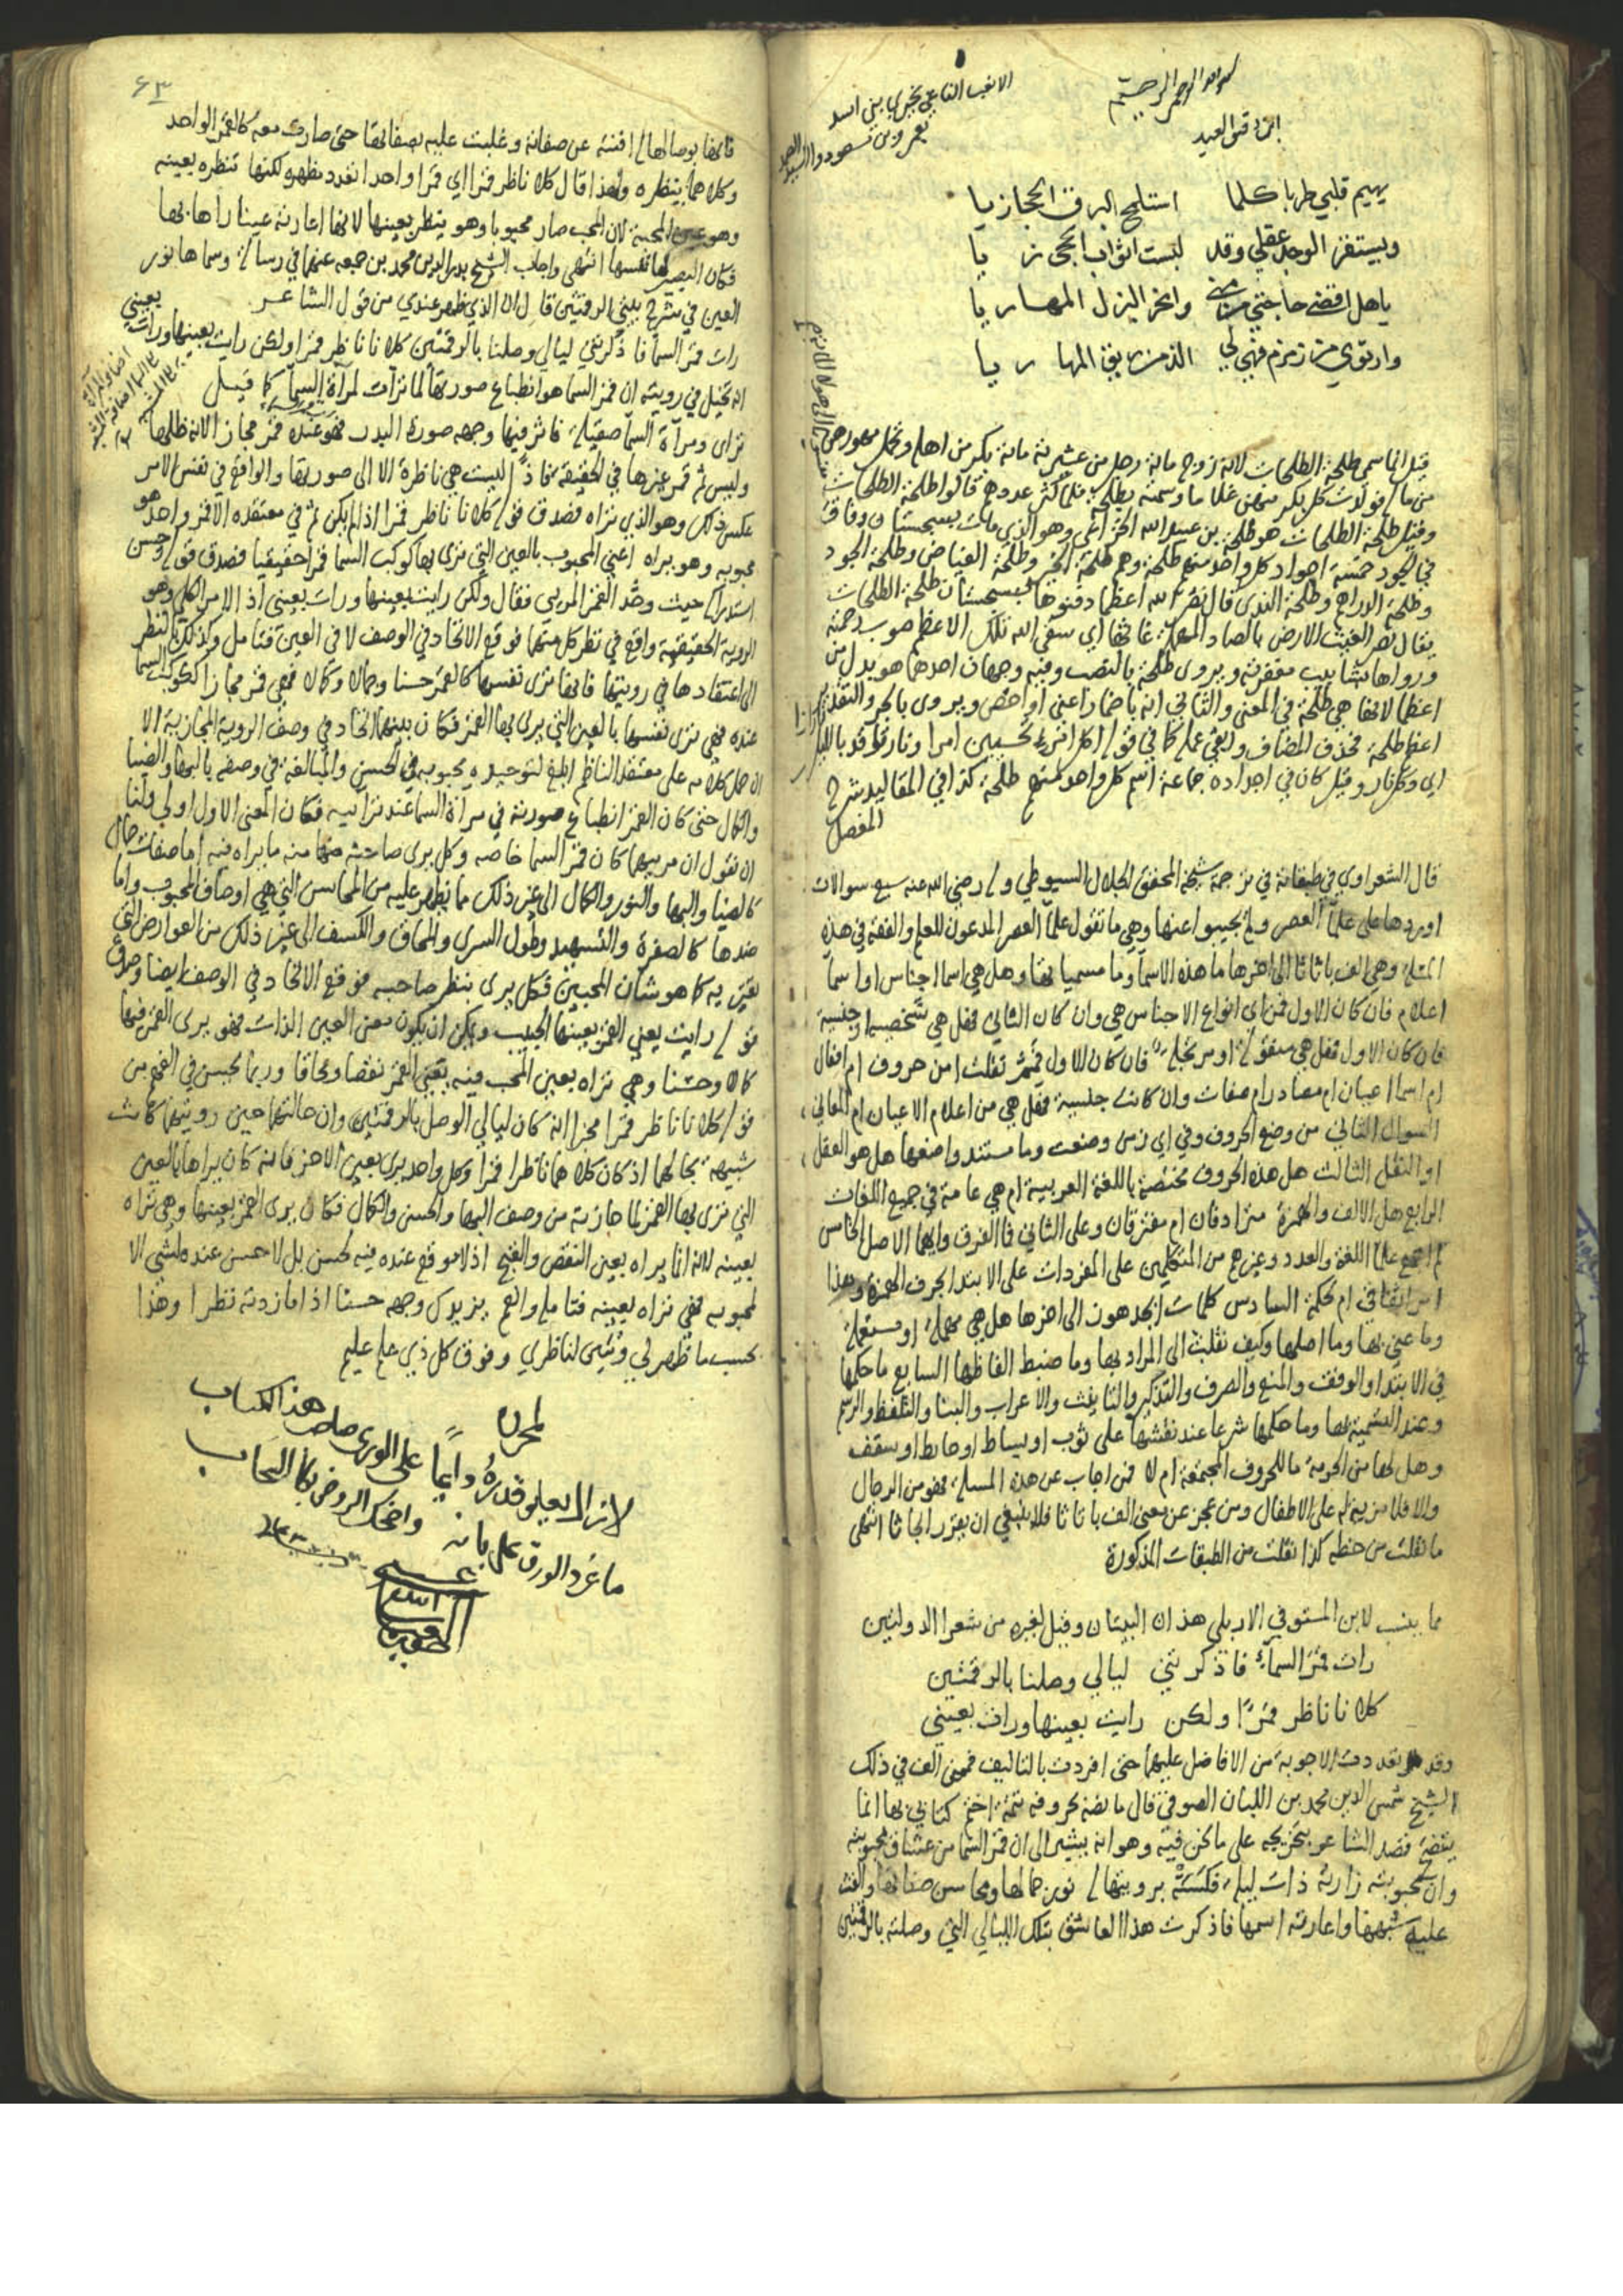 بسم الله الرحمن الرحيم
ابن دقيق العيد
يهيم قلبي طربا كلما استلمح البرق الحجازيا
ويستفز الوجد عقلي وقد لبست اثواب الحجى زيا
ياهل اقضي حاجتي من منى وانحر البزل المهاريا
وارتوي من زمزم فهي لي الذ من ريق المها ريا
الا نعب الناعي بخيري بني اسد
بعمرو بن مسعود وبالسيد الصمد
قيل انما سمي طلحة الطلحات لانه زوج ماية رجل من عشيرته ماية بكر من اهله وتحمل مهورهن
من ماله فولدت كل بكر منهن غلاما وسمته بطلحة فلما كثر عددهم قالوا طلحة الطلحات
وقيل طلحة الطلحات هو طلحة بن عبيد الله الخزاعي وهو الذي مات بسجستان وفاق
في الجود خمسة اجواد كل واحد منهم طلحة وهم طلحة الخير وطلحة الفياض وطلحة الجود
وطلحة الدراهم وطلحة الندى قال نضر الله اعظما دفنوها بسجستان طلحة الطلحات
يقال نضر الغيث الارض بالضاد المعجمة غاثها اي سقى الله تلك الاعظم صوب رحمته
ورواها شابيب مغفرته ويروى طلحة بالنصب وفيه وجهان احدهما هو بدل من
اعظما لانها هي طلحة في المعنى والثاني انه باضمار اعني او اخص ويروى بالجر والتقدير
اعظم طلحة فحذف المضاف وابقى عمله كما في قوله اكل امرء تحسبين امرا ونار توقد بالليل نارا
اي وكل نار وقيل كان في اجداده جماعة اسم كل واحد منهم طلحة كذا في المقاليد شرح
المفصل
قال الشعراوي في طبقاته في ترجمة شيخه المحقق الجلال السيوطي وله رضي الله عنه سبع سوالات
اوردها على علماء العصر ولم يجيبوا عنها وهي ما تقول علماء العصر المدعون للعلم والفقه في هذه
المسئلة وهي الف با تا ثا الى اخرها ما هذه الاسماء وما مسمياتها وهل هي اسما اجناس او اسما
اعلام فان كان الاول فمن اي انواع الاجناس هي وان كان الثاني فهل هي شخصية او جنسية
فان كان الاول فهل هي منقولة او مرتجلة فان كان الاول فمم نقلت امن حروف ام افعال
ام اسما اعيان ام مصادر ام صفات وان كانت جنسية فهل هي من اعلام الاعيان ام المعاني
السوال الثاني من وضع الحروف وفي اي زمن وضعت وما مستند واضعها هل هو العقل
او النقل الثالث هل هذه الحروف مختصة باللغة العربية ام هي عامة في جميع اللغات
الرابع هل الالف والهمزة مترادفان ام مفترقان وعلى الثاني فما الفرق وايهما الاصل الخامس
لم اجمع علما اللغة والعدد وغيرهم من المتكلمين على المفردات على الابتدا بحرف الهمزة وهذا
امر اتفاقي ام لحكمة السادس كلمات ابجد هوز الى اخرها هل هي مهملة او مستعملة
وما عني بها وما اصلها وكيف نقلت الى المراد بها وما ضبط الفاظها السابع ما حكمها
في الابتدا والوقف والمنع والصرف والتذكير والتانيث والاعراب والبنا والتلفظ والرسم
وعند التسمية بها وما حكمها شرعا عند نقشها على ثوب او بساط او حايط او سقف
وهل لها من الحرمة ما للحروف المجتمعة ام لا فمن اجاب عن هذه المسئلة فهو من الرجال
والا فلا مزية له على الاطفال ومن عجز عن معنى الف با تا ثا فلا ينبغي ان انتهى
ما نقلت من خطه كذا نقلت من الطبقات المذكورة
مما ينسب لابن المستوفي الاربلي هذان البيتان وقيل لغيره من شعرا الدولتين
رات قمر السماء فاذكرتني ليالي وصلنا بالرقمتين
كلانا ناظر قمرا ولكن رايت بعينها ورات بعيني
وقد تعددت الاجوبة من الافاضل عليهما حتى افردت بالتاليف فممن الف في ذلك
الشيخ شمس الدين محمد بن اللبان الصوفي قال ما نصه بحروفه تتمة اختم كتابي بها انما
يتضح قصد الشاعر بتخريجه على ما نحن فيه وهو انه يشير الى ان قمر السما من عشاق محبوبته
وان محبوبته زارته ذات ليلة فكسته برويتها له نور جمالها ومحاسن صفاتها والقت
عليه شبهها واعارته اسمها فاذكرت هذا العاشق بتلك الليالي التي وصلته بالرقمتين
٦٣
فانها بوصالها له افنته عن صفاته وغلبت عليه بصفاتها حتى صارت معه كالقمر الواحد
وكلاهما ينظره ولهذا قال كلانا ناظر قمرا اي قمرا واحدا تعدد مظهره لكنها تنظره بعينه
وهو عين المحبة لان المحب صار محبوبا وهو ينظر بعينها لانها اعارته عينا راها بها
فكان البصير لها نفسها انتهى واجاب الشيخ بدر الدين محمد بن جمعه عنهما في رسالة وسماها نور
العين في شرح بيتي الرقمتين قال ان الذي ظهر عندي من قول الشاعر
رات قمر السما فاذكرتني ليالي وصلنا بالرقمتين كلانا ناظر قمرا ولكن رايت بعينها ورات بعيني
انه تخيل في رويته ان قمر السما هو انطباع صورتها لما تراات لمرآة السماء كما قيل
تراى ومرآة السما صقيلة فاثر فيها وجهه صورة البدر فهو عنده قمر مجاز الانه ظلها
وليس ثم قمر غيرها في الحقيقة فاذا ليست هي ناظرة الا الى صورتها والواقع في نفس الامر
عكس ذلك وهو الذي نراه فصدق قوله كلانا ناظر قمرا اذ لم يكن ثم في معتقده الا قمر واحد هو
محبوبه وهو يراه اعني المحبوب بالعين التي نرى بها كوكب السما قمرا حقيقيا فصدق قوله وحسن
استدراكه حيث وحد القمر المريي فقال ولكن رايت بعينها ورات بعيني اذ الامر الكلي وهو
الروية الحقيقية واقع في نظر كل منهما فوقع الاتحاد في الوصف لا في العين فتامل وكذلك بالنظر
الى اعتقادها في رويتها فانها ترى نفسها كالقمر حسنا وجمالا وكمالا فهي قمر مجازا لكوكب السما
عنده فهي ترى نفسها بالعين التي يرى بها القمر فكان بينهما اتحاد في وصف الروية المجازية الا
ان حمل كلامه على معتقد الناظم ابلغ لتوحيده محبوبه في الحسن والمبالغة في وصفه بالبها والضيا
والكمال حتى كان القمر انطباع صورته في مراة السما عند ترائيه فكان المعنى الاول اولى ولنا
ان نقول ان مرييهما كان قمر السما خاصه وكل يرى صاحبه متصفا منه ما يراه فيه اما صفات جمال
كالضيا والبها والنور والكمال الى غير ذلك مما يظهر عليه من المحاسن التي هي اوصاف المحبوب واما
ضدها كالصفرة والتسهيد وطول السرى والمحاق والكسف الى غير ذلك من العوارض التي
تعتريه كما هو شان المحبين فكل يرى بنظر صاحبه فوقع الاتحاد في الوصف ايضا وصدق
قوله رايت يعني القمر بعينها الحبيب ويمكن ان يكون معنى العين الذات فهو يرى القمر فيها
كمالا وحسنا وهي تراه بعين المحب فيه بعين القمر نقصا ومحاقا وربما يحسن في الفهم من
قوله كلانا ناظر قمرا مخبرا انه كان ليالي الوصل بالرقمتين وان حالتهما حين رويتهما كانت
شبيهة بحالهما اذ كان كلاهما ناظرا قمرا وكل واحد يرى بعين الاخر فانه كان يراها بالعين
التي ترى بها القمر لما حازته من وصف البها والحسن والكمال فكان يرى القمر بعينها وهي تراه
بعينه لانه انما يراه بعين النقص والقبح اذ لا موقع عنده فيه لحسن بل لا حسن عنده لشي الا
لمحبوبه فهي تراه بعينه فتامله والله يزيدك وجهه حسنا اذا ما زدته نظرا وهذا
بحسب ما ظهر لي وتبين لناظري وفوق كل ذي علم عليم
لمحرره
لا زال يعلو قدره دايما على الورى صاحب هذا الكتاب
ما غرد الورق على بانه واضحك الروض بكا السحاب